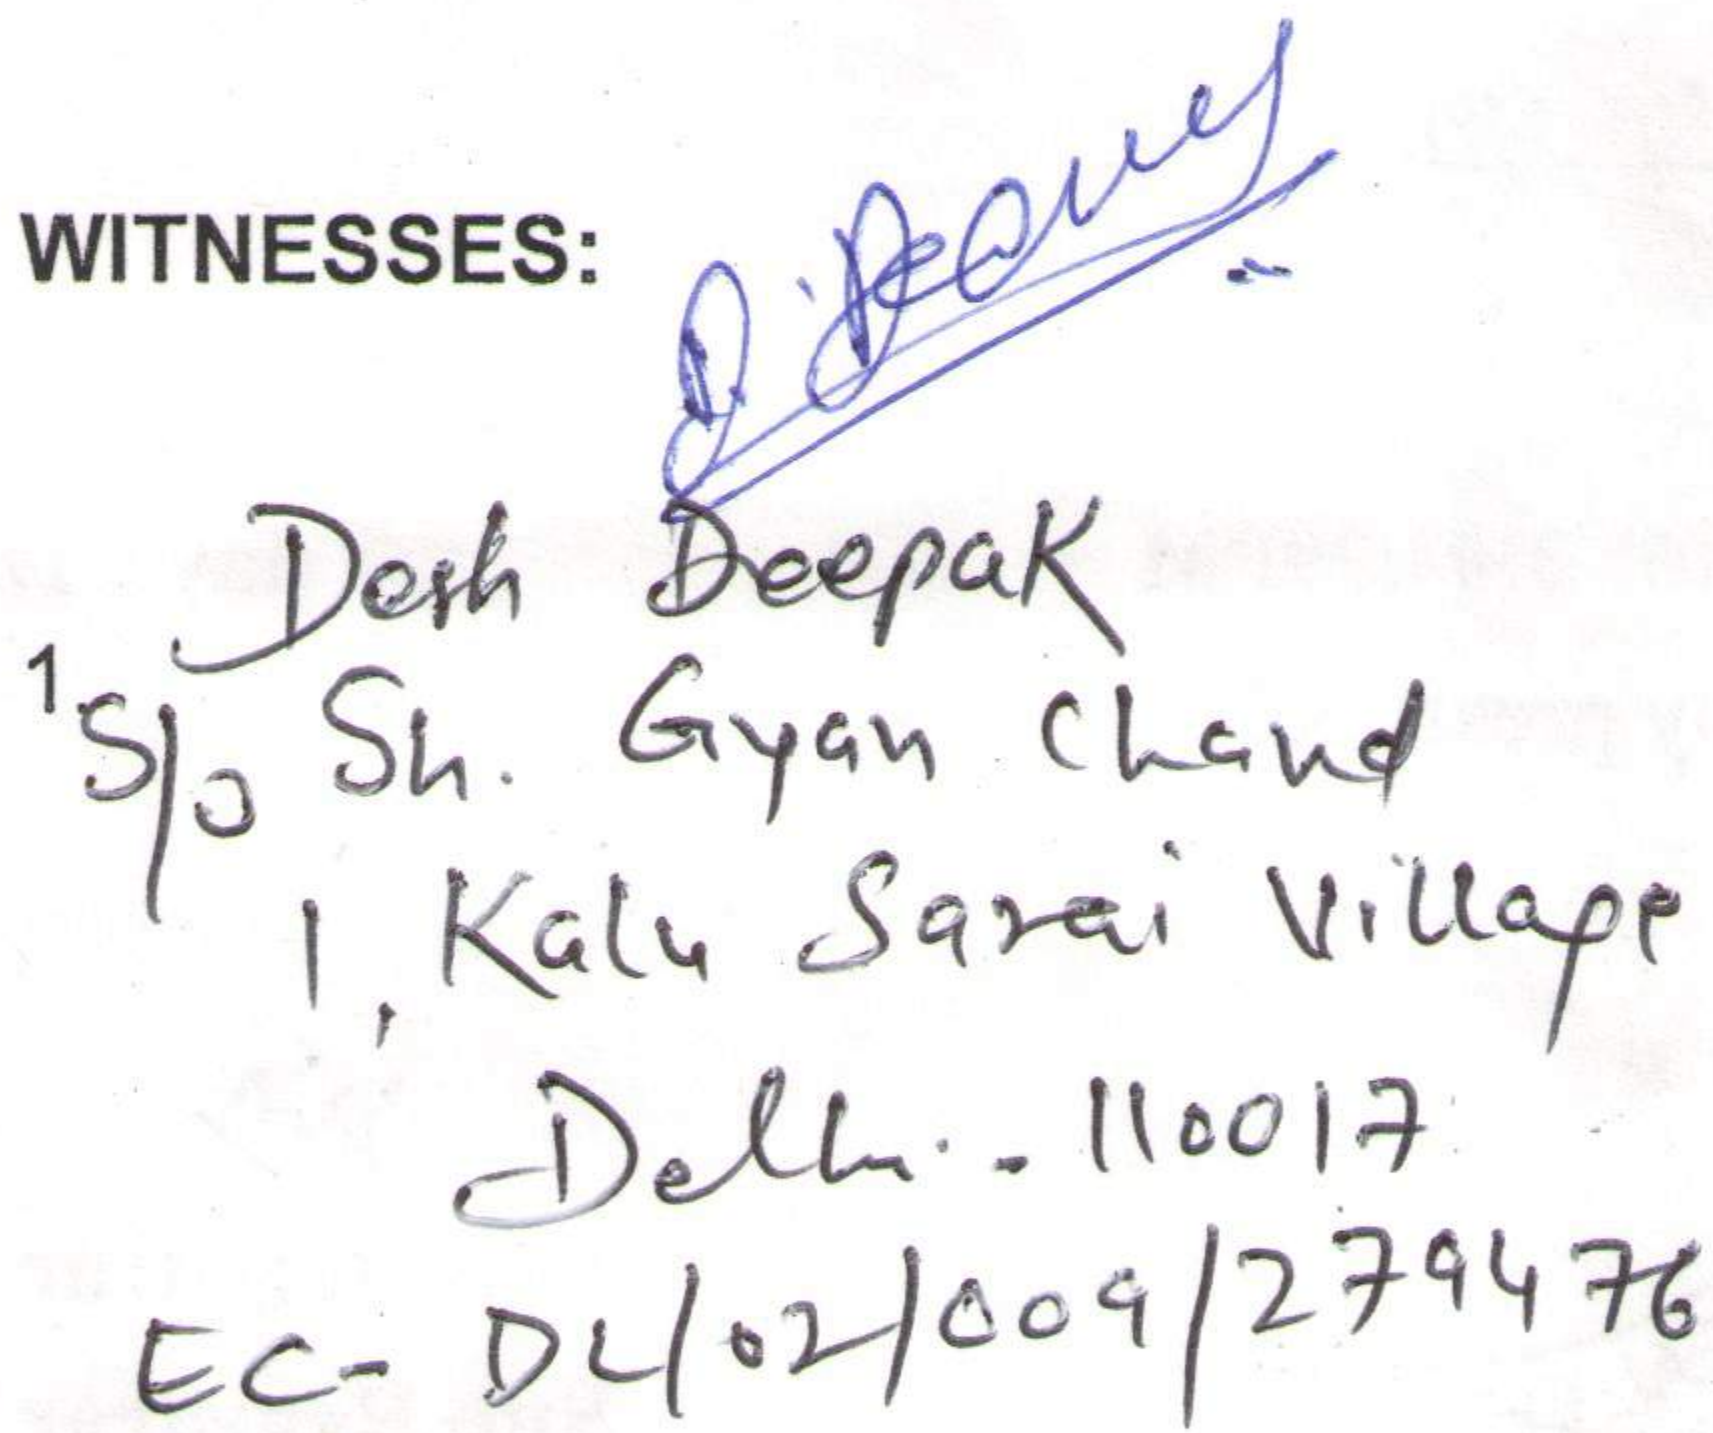 WITNESSES:
Desh Deepak
1.
S/o Sh. Gyan Chand
1, Kalu Sarai Village
Delhi - 110017
EC- DL/02/009/279476